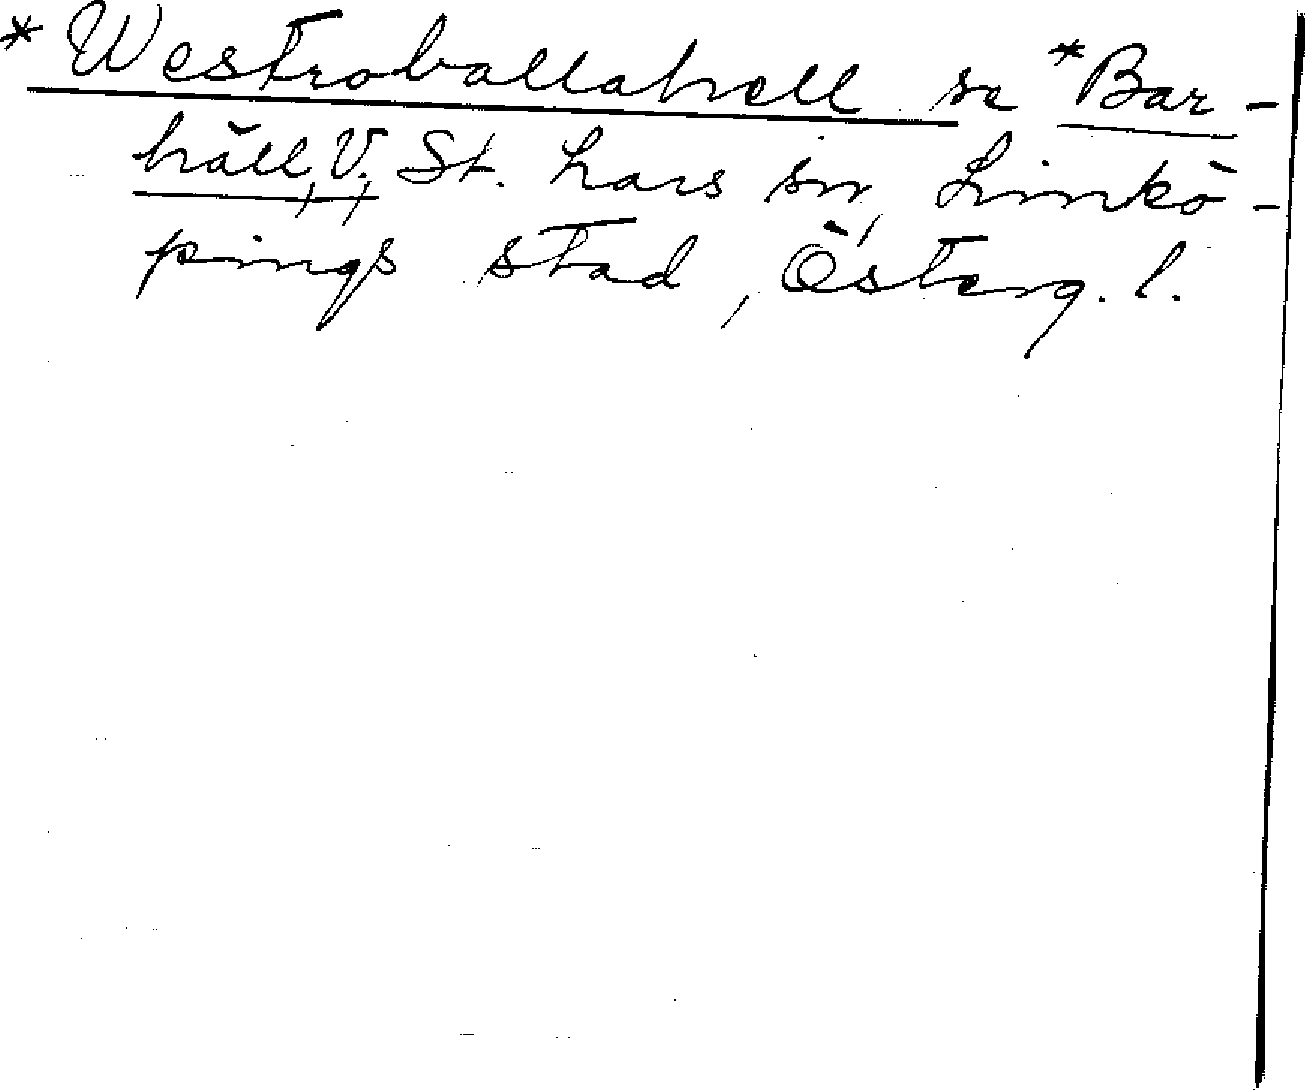 *Westroballahell se *Bar-
häll, V., St. Lars sn, Linkö-
pings stad, Österg. l.